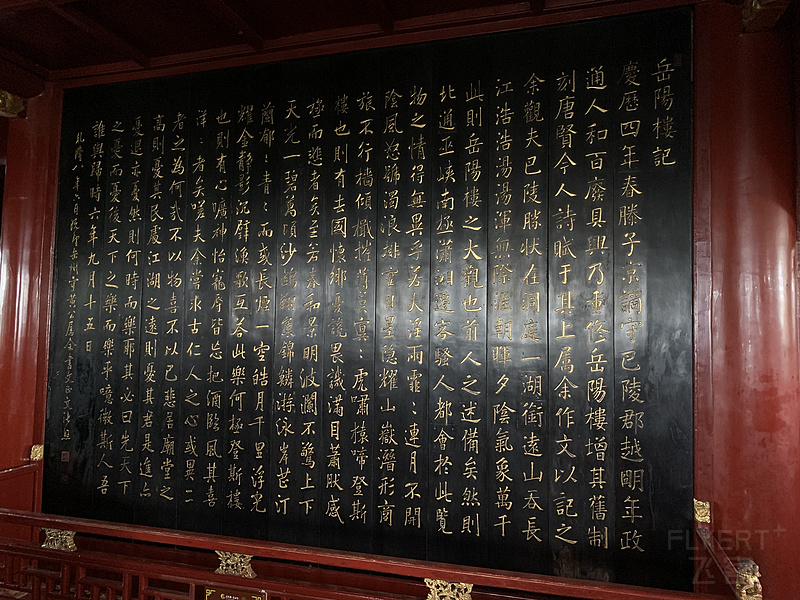 岳陽樓記
慶歷四年春滕子京謫守巴陵郡越明年政
通人和百廢具興乃重修岳陽樓增其舊制
刻唐賢今人詩賦于其上屬余作文以記之
余觀夫巴陵勝狀在洞庭一湖銜遠山吞長
江浩浩湯湯渾無際涯朝暉夕陰氣象萬千
此則岳陽樓之大觀也前人之述備矣然則
北通巫峽南極瀟湘遷客騷人都會於此覽
物之情得無異乎若夫淫雨霏:連月不開
陰風怒號濁浪排空日星隱耀山嶽潛形商
旅不行檣傾檝摧薄暮冥:虎嘯猿啼登斯
樓也則有去國懷鄉憂讒畏譏滿目蕭然感
極而悲者矣至若春和景明波瀾不驚上下
天光一碧萬頃沙鷗翔集錦鱗游泳岸芷汀
蘭郁:青:而或長煙一空皓月千里浮光
耀金靜影沉璧漁歌互答此樂何極登斯樓
也則有心曠神怡寵辱皆忘把酒臨風其喜
洋:者矣嗟夫余嘗求古仁人之心或異二
者之為何哉不以物喜不以己悲居廟堂之
高則憂其民處江湖之遠則憂其君是進亦
憂退亦憂然則何時而樂耶其必曰先天下
之憂而憂後天下之樂而樂乎噫微斯人吾
誰與歸時六年九月十五日
乾隆八年六月 守黃公屬余書 張照
FLYERT+
飞客